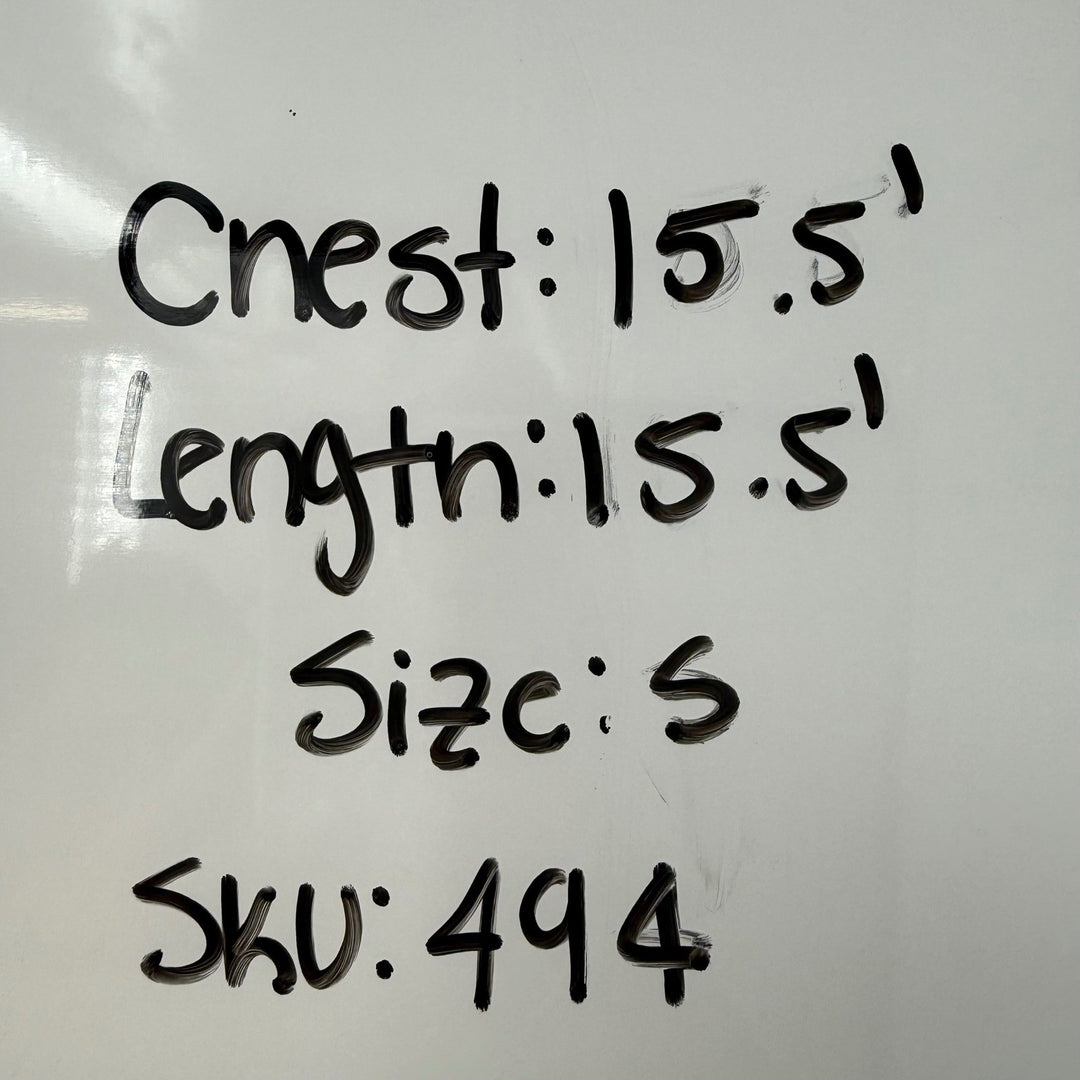 Chest: 15.5'
Length: 15.5'
Size: S
Sku: 494